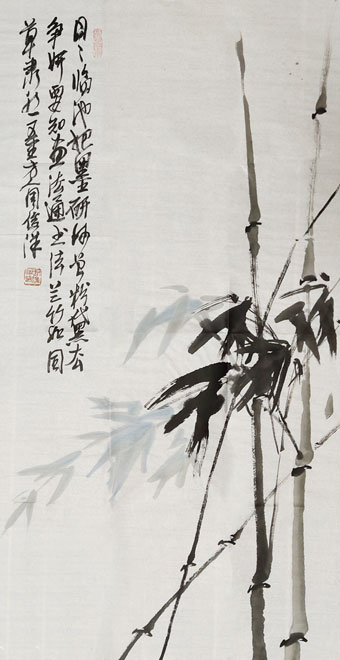 日〻临池把墨研何曾粉黛去
争妍要知画法通书法兰竹如同
草隶然